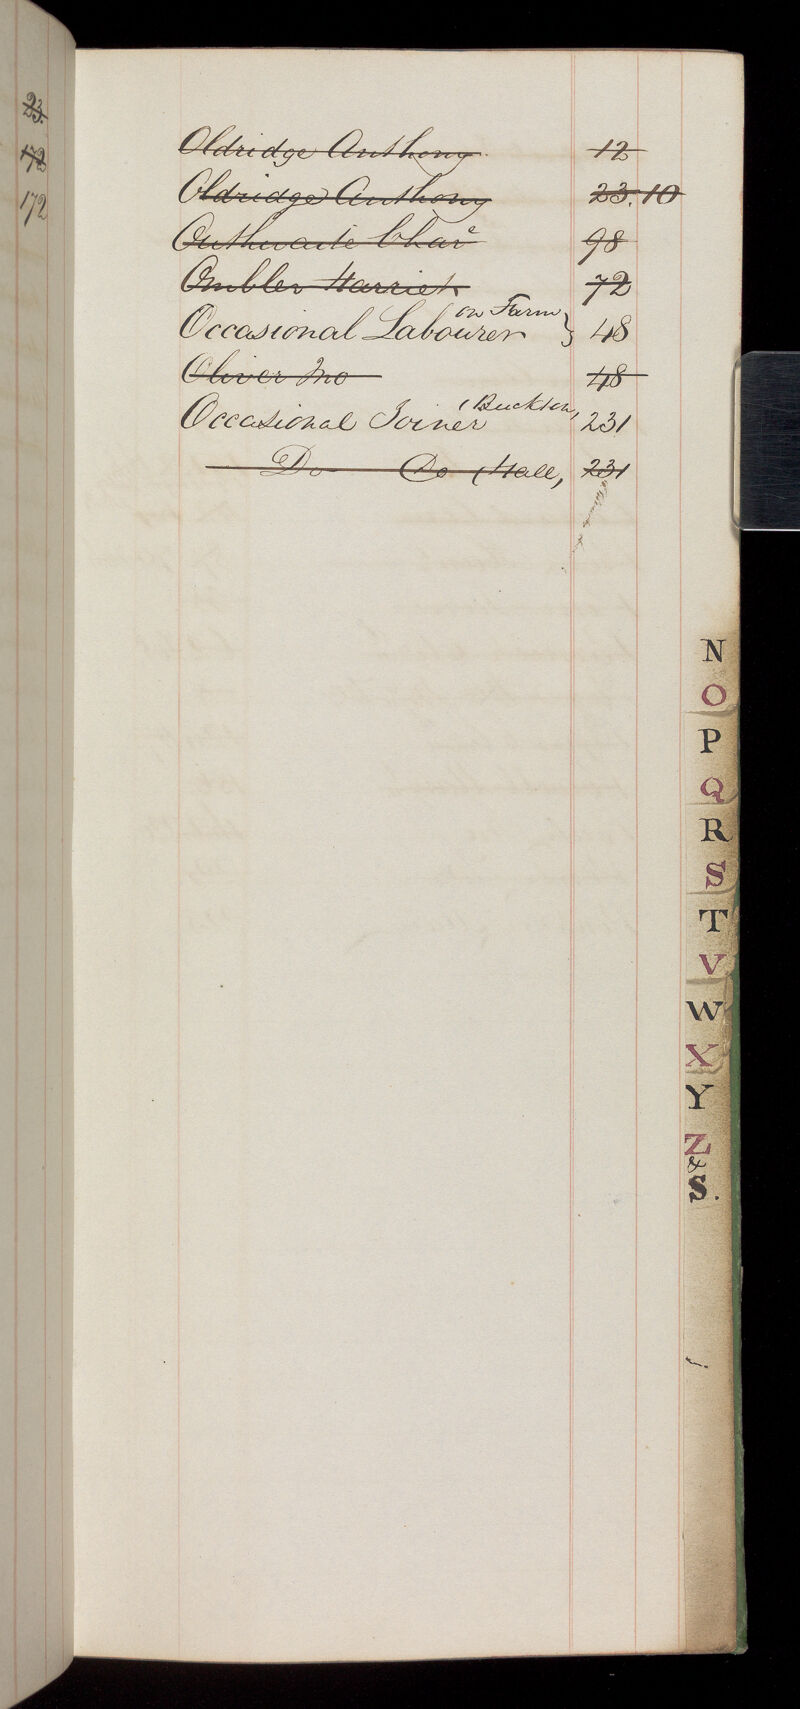 23.
172
172
Oldridge Anthony 12
Oldridge Anthony 23. 10
Outhwaite Chas 98
Ombler Harriet 72
on Farm
Occasional Labourer } 48
Oliver Jno 48
(Buckton,
Occasional Joiner 231
Do Do (Hall, 231
N
O
P
Q
R
S
T
V
W
X
Y
Z
&
S.